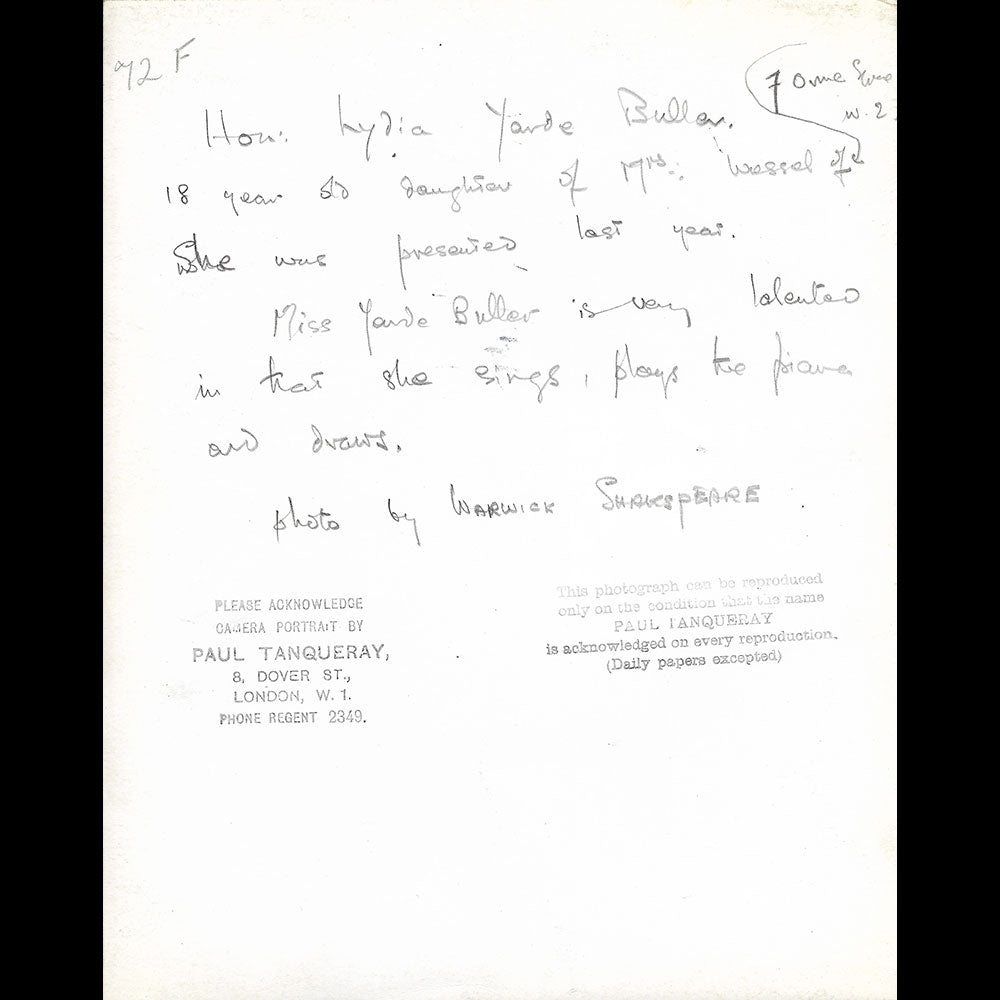 92 F
7 Orme
W. 2
Hon: Lydia Yarde Buller.
18 year old daughter of Mrs: Wessel of
She was presented last year.
Miss Yarde Buller is very talented
in that she sings, plays the piano
and draws.
photo by WARWICK SHAKSPEARE.
PLEASE ACKNOWLEDGE
CAMERA PORTRAIT BY
PAUL TANQUERAY,
8, DOVER ST.,
LONDON, W. 1.
PHONE REGENT 2349.
This photograph can be reproduced
only on the condition that the name
PAUL TANQUERAY
is acknowledged on every reproduction.
(Daily papers excepted)